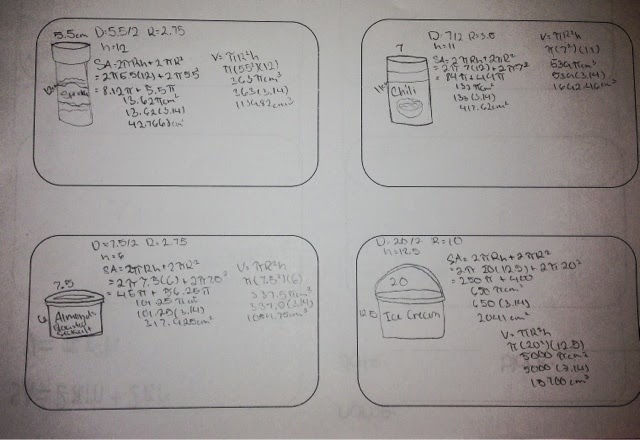 5.5cm D=5.5/2 R=2.75
h=12
SA=2πRh+2πR²
=2π5.5(12)+2π5.5²
=8.12π+5.5π
13.62πcm²
13.62(3.14)
42.7668cm²
V=πR²h
π(5.5²)(12)
363πcm³
363(3.14)
12
7
D=7/2 R=3.5
h=11
SA=2πRh+2πR²
=2π7(12)+2π7²
V=πR²h
π(7²)(11)
539πcm³
539(3.14)
11
Chili
D=7.5/2 R=2.75
h=6
SA=2πRh+2πR²
=2π7.5(6)+2π7.5²
=45π+56.25π
101.25πcm²
101.25(3.14)
317.925cm²
V=πR²h
π(7.5²)(6)
337.5πcm³
337.5(3.14)
7.5
6
Almonds
D=20/2 R=10
h=12.5
SA=2πRh+2πR²
=2π20(12.5)+2π20²
=250π+400
650πcm²
650(3.14)
2041cm²
V=πR²h
π(20²)(12.5)
5000πcm³
5000(3.14)
15700cm³
20
12.5
Ice Cream